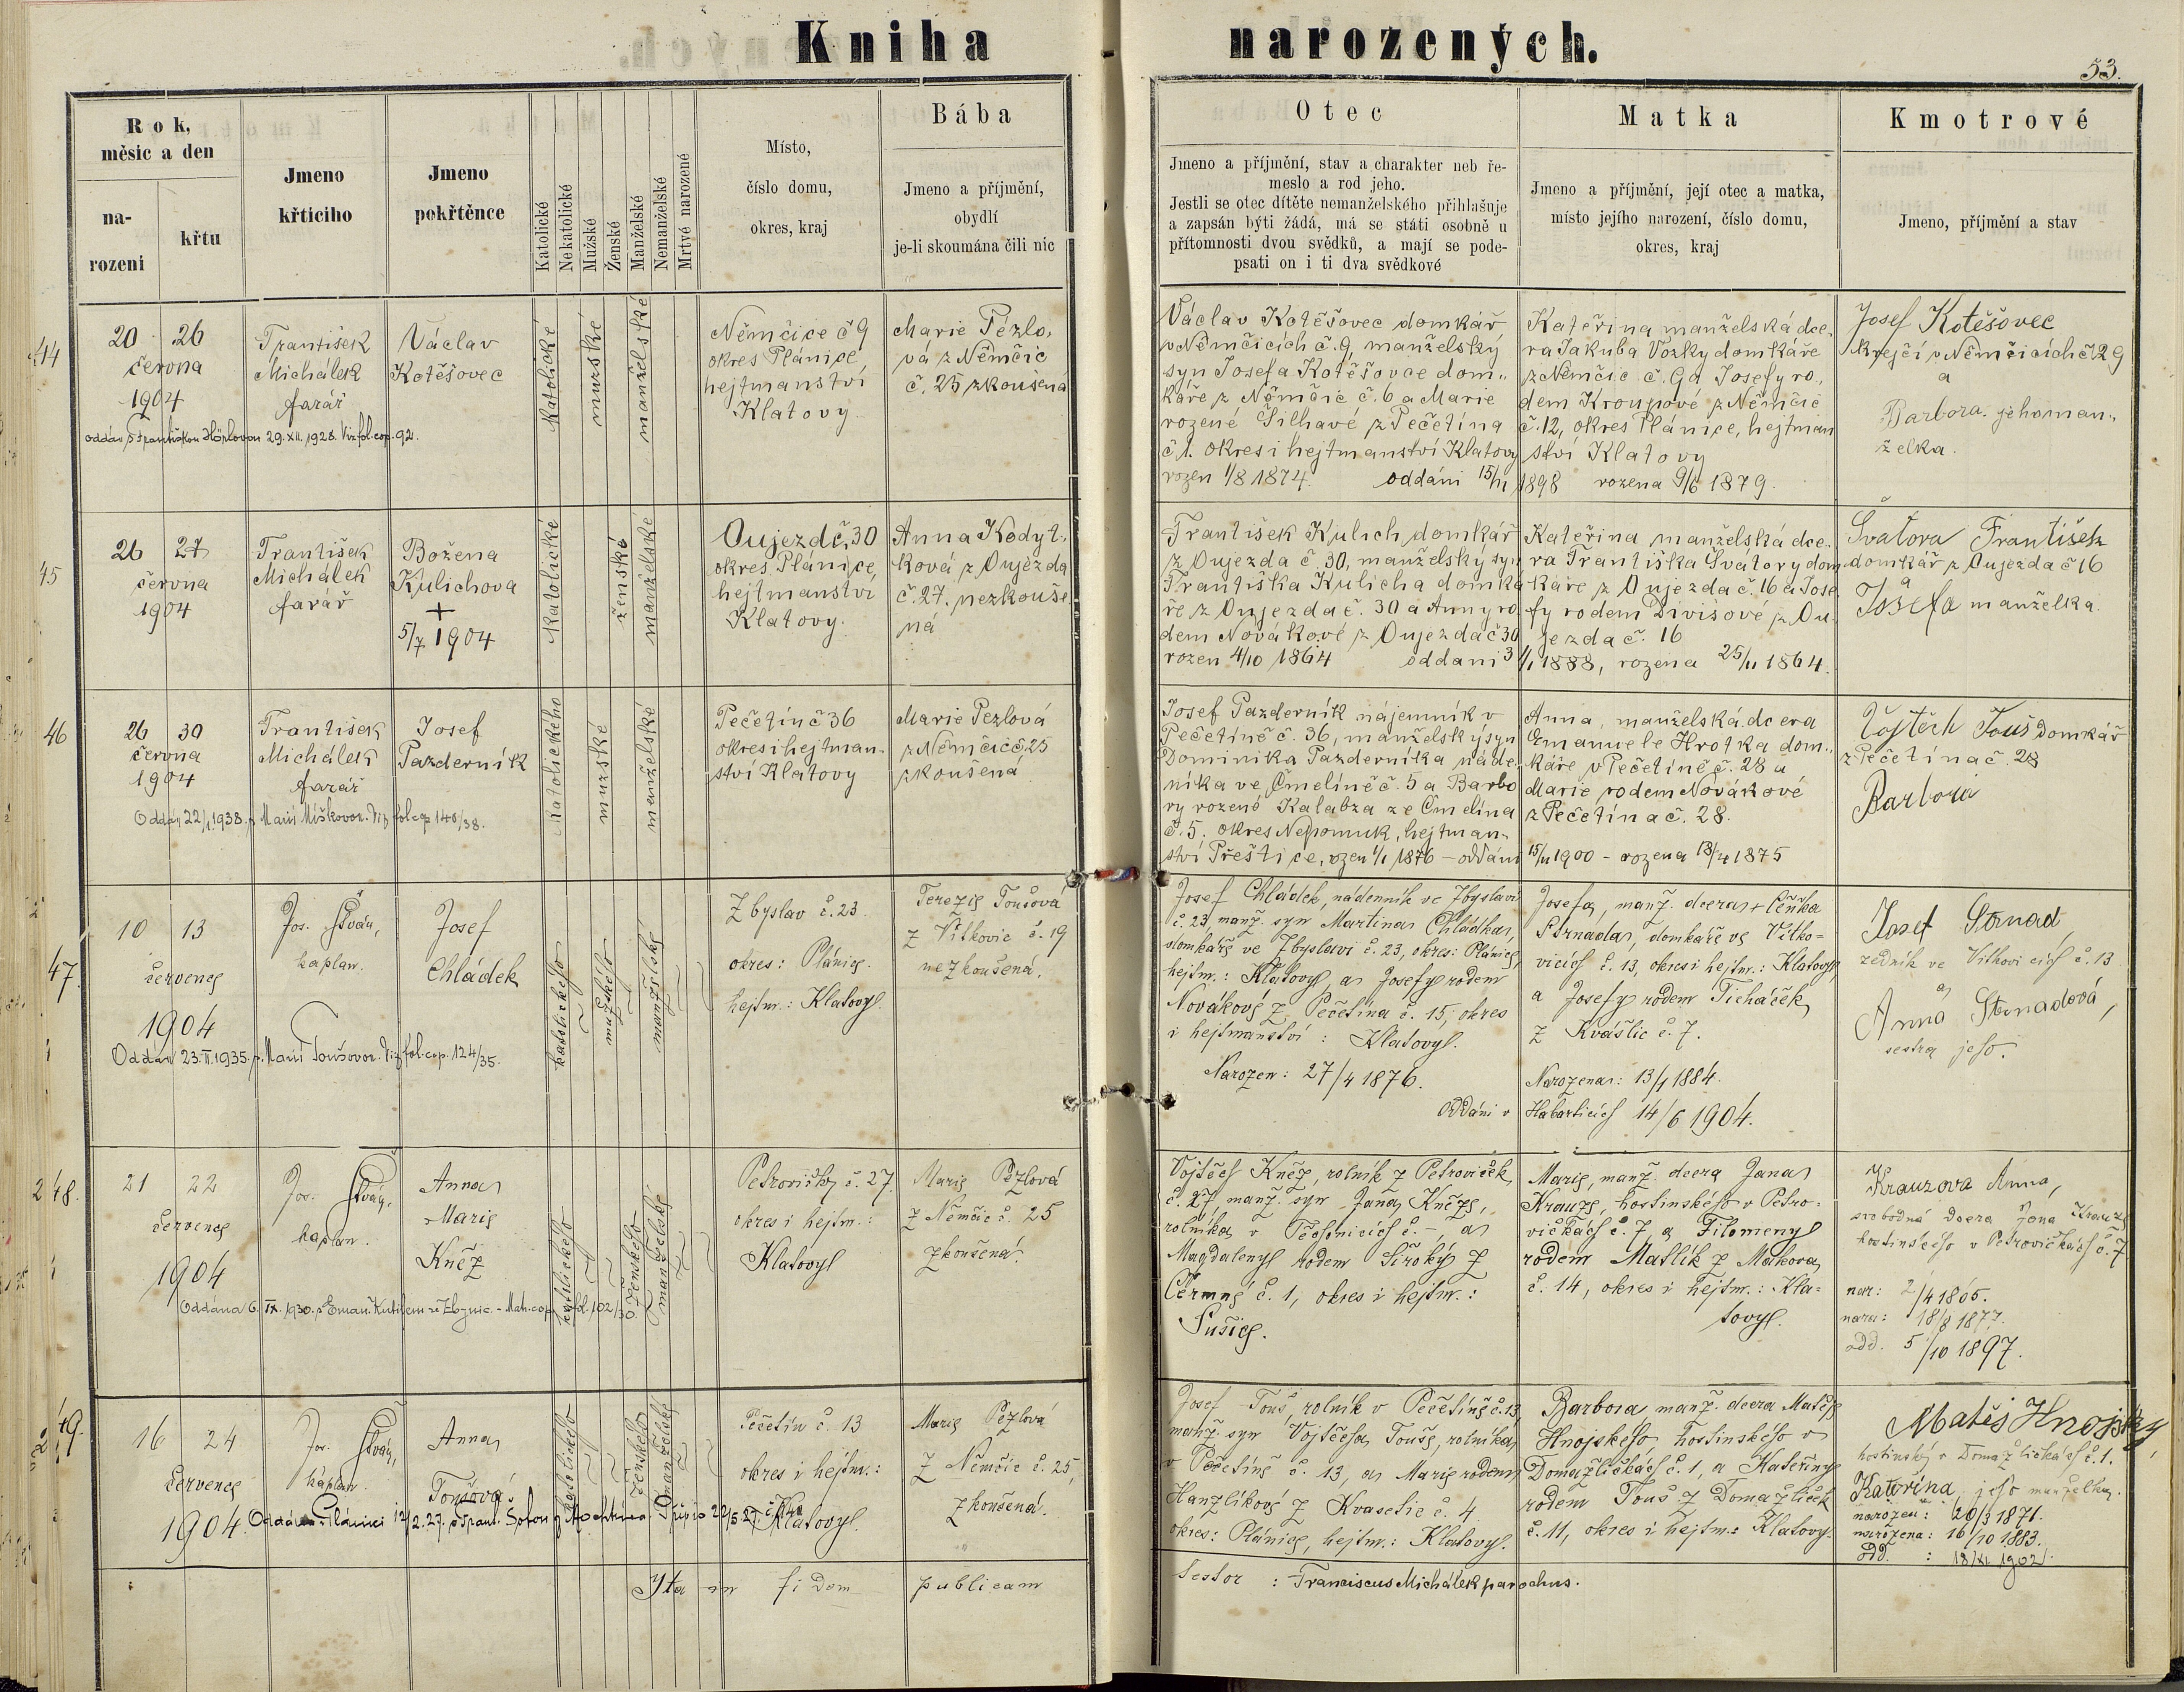 Kniha narozených.
53.
Rok, měsíc a den
narození
křtu
Jmeno křtícího
Jmeno pokřtěnce
Katolické
Nekatolické
Mužské
Ženské
Manželské
Nemanželské
Mrtvé narozené
Místo,
číslo domu,
okres, kraj
Bába
Jmeno a příjmění,
obydlí
je-li skoumána čili nic
Otec
Jmeno a příjmění, stav a charakter neb ře-
meslo a rod jeho.
Jestli se otec dítěte nemanželského přihlašuje
a zapsán býti žádá, má se státi osobně u
přítomnosti dvou svědků, a mají se pode-
psati on i ti dva svědkové
Matka
Jmeno a příjmění, její otec a matka,
místo jejího narození, číslo domu,
okres, kraj
Kmotrové
Jmeno, příjmění a stav
44
20 26
června
1904
František
Michálek
farář
Václav
Kotěšovec
oddán s Františkou 29.XII.1928. Viz fol. cop. 92.
katolické
mužské
manželské
Němčice č 9
okres Plánice,
hejtmanství
Klatovy
Marie Pézlo-
vá z Němčic
č. 25 zkoušená
Václav Kotěšovec domkář
v Němčicích č. 9, manželský
syn Josefa Kotěšovce dom-
káře z Němčic č. 6 a Marie
rozené Šilhavé z Pečetína
č 1. okres i hejtmanství Klatovy
rozen 1/8 1874. oddáni 15/11
Kateřina manželská dce-
ra Jakuba Vozky domkáře
z Němčic č. 9 a Josefy ro-
dem Kroupové z Němčic
č. 12, okres Plánice, hejtman
ství Klatovy
1898 rozena 9/6 1879.
Josef Kotěšovec
krejčí v Němčicích č 29
a
Barbora jeho man-
želka.
45
26 27
června
1904
František
Michálek
farář
Božena
Kulichova
+
5/7 1904
katolické
ženské
manželské
Oujezd č. 30
okres Plánice,
hejtmanství
Klatovy.
Anna Kodyt-
ková z Oujezda
č. 27. nezkouše
ná
František Kulich domkář
z Oujezda č. 30, manželský syn
Františka Kulicha domka
ře z Oujezda č. 30 a Anny ro
dem Novákové z Oujezda č 30
rozen 4/10 1864 oddani 3
Kateřina manželská dce-
ra Františka Švatory dom
káře z Oujezda č. 16 a Jose
fy rodem Divišové z Ou
jezda č. 16
/1 1888, rozena 25/11 1864.
Švatora František
domkář z Oujezda č 16
a
Josefa manželka.
46
26 30
června
1904
František
Michálek
farář
Josef
Pazderník
Oddán 22/1.1938. s Marií Míškovou. Viz fol. cop 140/38.
katolického
mužské
manželské
Pečetín č 36
okres i hejtman-
ství Klatovy
Marie Pezlová
z Němčic č. 25
zkoušená
Josef Pazderník nájemník v
Pečetíně č. 36, manželský syn
Dominika Pazderníka náde-
níka ve Čmelíně č. 5 a Barbo
ry rozené Kalabza ze Čmelína
č. 5. okres Nepomuk, hejtman-
ství Přeštice, rozen 1/1 1876 - oddáni
Anna, manželská dcera
Emanuele Hrotka dom-
káře v Pečetíně č. 28 a
Marie rodem Novákové
z Pečetína č. 28.
15/11 1900 - rozena 13/4 1875
Vojtěch Touš domkář
z Pečetína č. 28
Barbora
47.
10 13
července
1904
Jos. Šván,
kaplan.
Josef
Chládek
Oddán 23.II.1935. s Marií Toušovou. Viz fol. cop. 124/35.
katolického
mužského
manželské
Zbyslav č. 23
okres: Plánice.
hejtm.: Klatovy.
Terezie Toušová
z Vítkovic č. 19
nezkoušená.
Josef Chládek, nádenník ve Zbyslavi
č. 23, manž. syn Martina Chládka,
domkáře ve Zbyslavi č. 23, okres: Plánice,
hejtm.: Klatovy, a Josefy rodem
Novákové z Pečetína č. 15, okres
i hejtmanství: Klatovy.
Narozen: 27/4 1876.
Oddáni v
Josefa, manž. dcera + Čeňka
Strnada, domkáře ve Vítko-
vicích č. 13, okres i hejtm.: Klatovy,
a Josefy rodem Ticháček,
z Kvášlic č. 7.
Narozena: 13/1 1884.
Habarticích 14/6 1904.
Josef Strnad,
zedník ve Vítkovicích č. 13
a
Anna Strnadová,
sestra jeho.
48.
21 22
července
1904
Jos. Šván,
kaplan.
Anna
Marie
Kněz
Oddána 6. IX. 1930. s Eman. Kutilem ze Zbynic. - Matr. cop. fol. 102/30.
katolického
ženského
manželské
Petrovičky č. 27.
okres i hejtm.:
Klatovy
Marie Pézlová
z Němčic č. 25
zkoušená.
Vojtěch Kněz, rolník z Petroviček
č. 27, manž. syn Jana Kněze,
rolníka v č. -, a
Magdaleny rodem Široký z
Čermné č. 1, okres i hejtm.:
Sušice.
Marie, manž. dcera Jana
Krauze, hostinského v Petro-
vičkách č. 7, a Filomeny
rodem Matlík z Makova
č. 14, okres i hejtm.: Kla-
tovy.
Krauzova Anna,
svobodná dcera Jana Krauze
hostinského v Petrovičkách č. 7
nar: 2/4 1865.
nara: 18/8 1877.
odd. 5/10 1897.
49.
16 24
července
1904
Jos. Šván,
kaplan.
Anna
Toušová
Oddána v Plánici 12/2.27. s Frant. Šotou z Mochtína.
katolického
ženského
manželské
Pečetín č. 13
okres i hejtm.:
Klatovy.
Marie Pézlová
z Němčic č. 25,
zkoušená.
Josef Touš, rolník v Pečetíně č. 13,
manž. syn Vojtěcha Touše, rolníka
v Pečetíně č. 13, a Marie rodem
Hanzlíkové z Kvasetic č. 4
okres: Plánice, hejtm.: Klatovy.
Barbora manž. dcera Matěje
Hnojského hostinského v
Domažličkách č. 1, a Kateřiny
rodem Touš z Domažliček
č. 11, okres i hejtm.: Klatovy.
Matěj Hnojský,
hostinský v Domažličkách č. 1.
Kateřina jeho manželka.
narozen: 20/3 1871.
narozena: 16/10 1883.
odd. : 18/XI 1902.
Ita in fidem publicam
testor : Franciscus Michálek parochus.